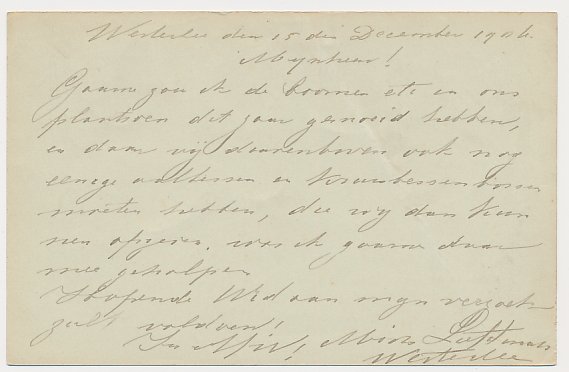 Westerlee den 15 den December 1906.
Mijnheer!
Gaarne zou ik de boomen etc in ons
plantsoen dit jaar gesnoeid hebben,
en daar wij daarenboven ook nog
eenige aalbessen en kruisbessenboomen
moeten hebben, die wij dan kun
nen opgeven, was ik gaarne daar
mee geholpen
Hopende Ued aan mijn verzoek
zult voldoen!
Westerlee